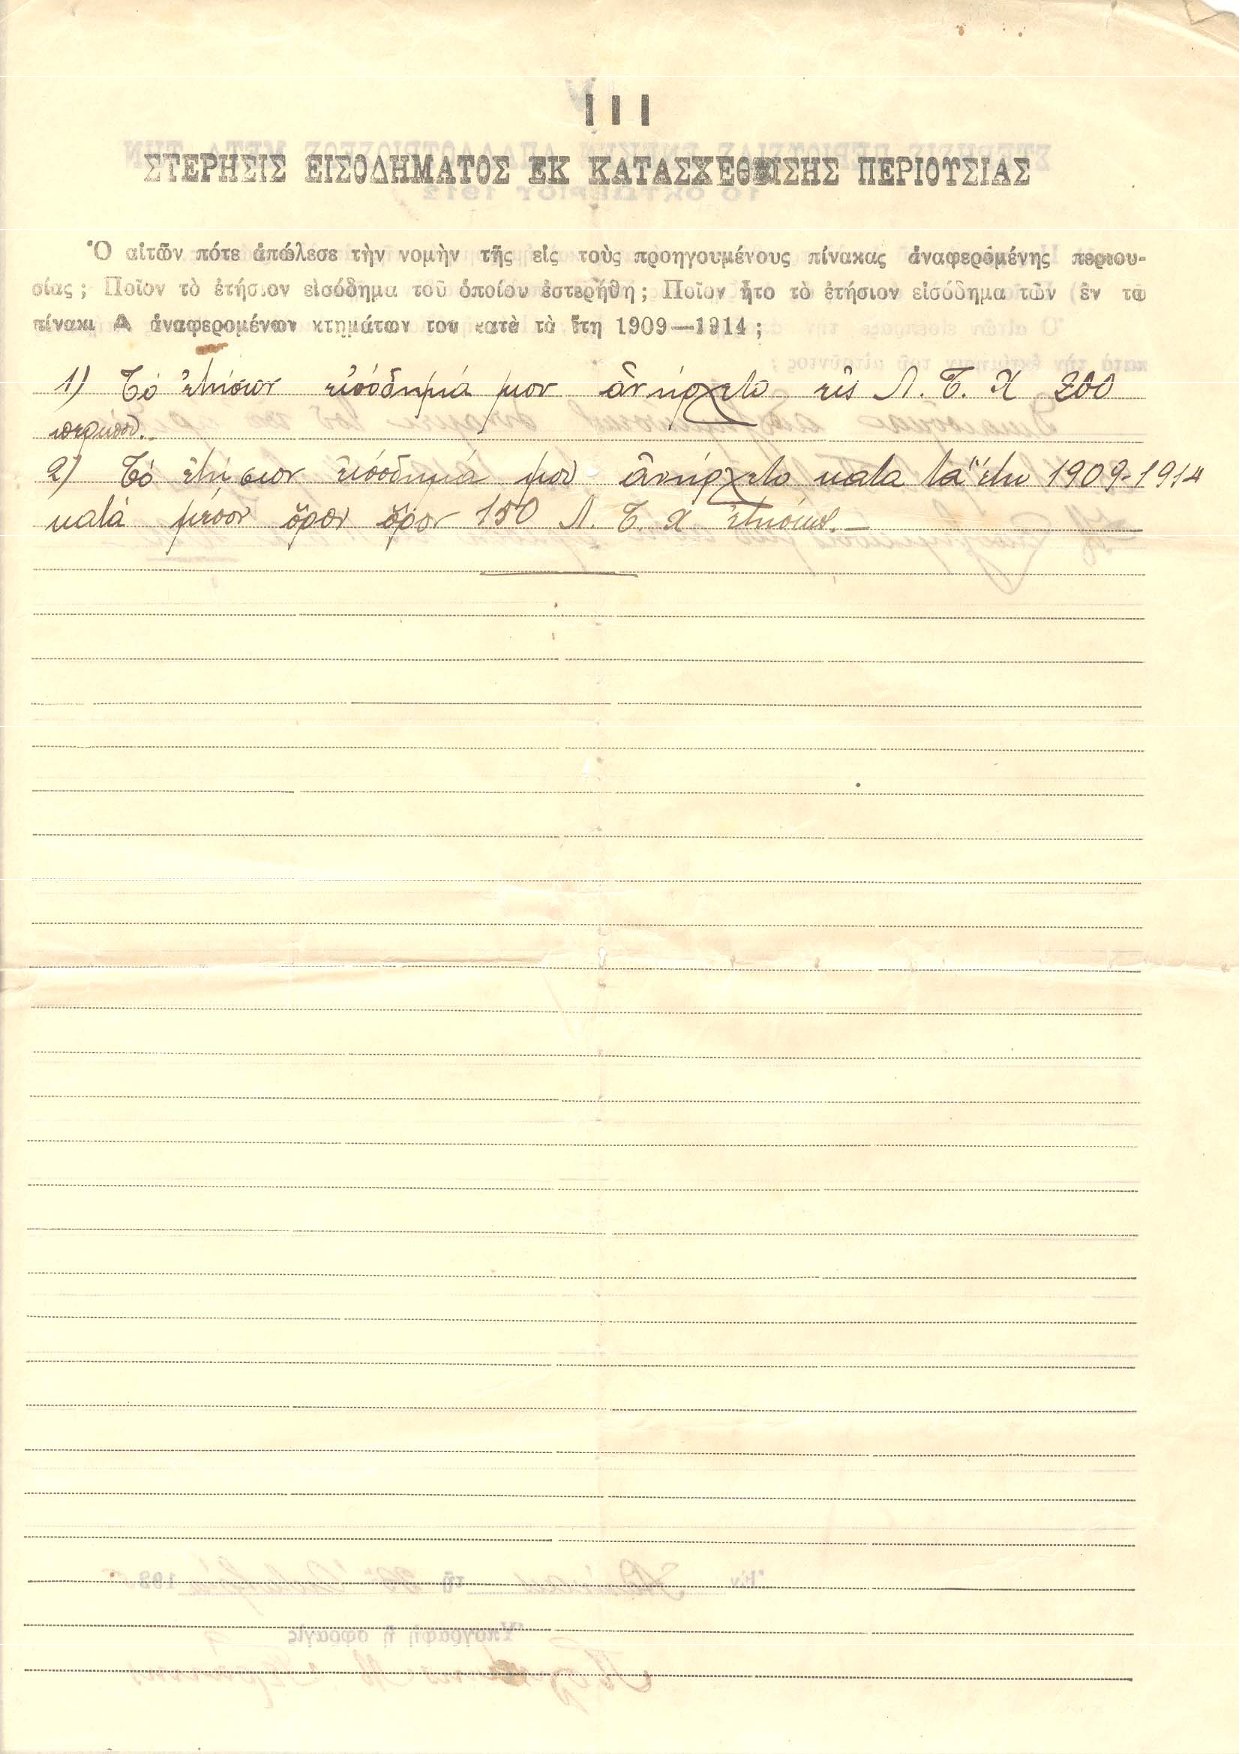 III
ΣΤΕΡΗΣΙΣ ΕΙΣΟΔΗΜΑΤΟΣ ΕΚ ΚΑΤΑΣΧΕΘΕΙΣΗΣ ΠΕΡΙΟΥΣΙΑΣ
Ὁ αἰτῶν πότε ἀπώλεσε τὴν νομὴν τῆς εἰς τοὺς προηγουμένους πίνακας ἀναφερομένης περιου-
σίας; Ποῖον τὸ ἐτήσιον εἰσόδημα τοῦ ὁποίου ἐστερήθη; Ποῖον ἦτο τὸ ἐτήσιον εἰσόδημα τῶν ἐν τῷ
πίνακι Α ἀναφερομένων κτημάτων του κατὰ τὰ ἔτη 1909—1914;
1) Τό ἐτήσιον εἰσόδημά μου ἀνήρχετο εἰς Λ. Τ. Χ 200
περίπου.
2) Τό ἐτήσιον εἰσόδημά μου ἀνήρχετο κατα τα ἔτη 1909-1914
κατά μέσον ὅρον ὅρον 150 Λ. Τ. Χ ἐτησίως.—